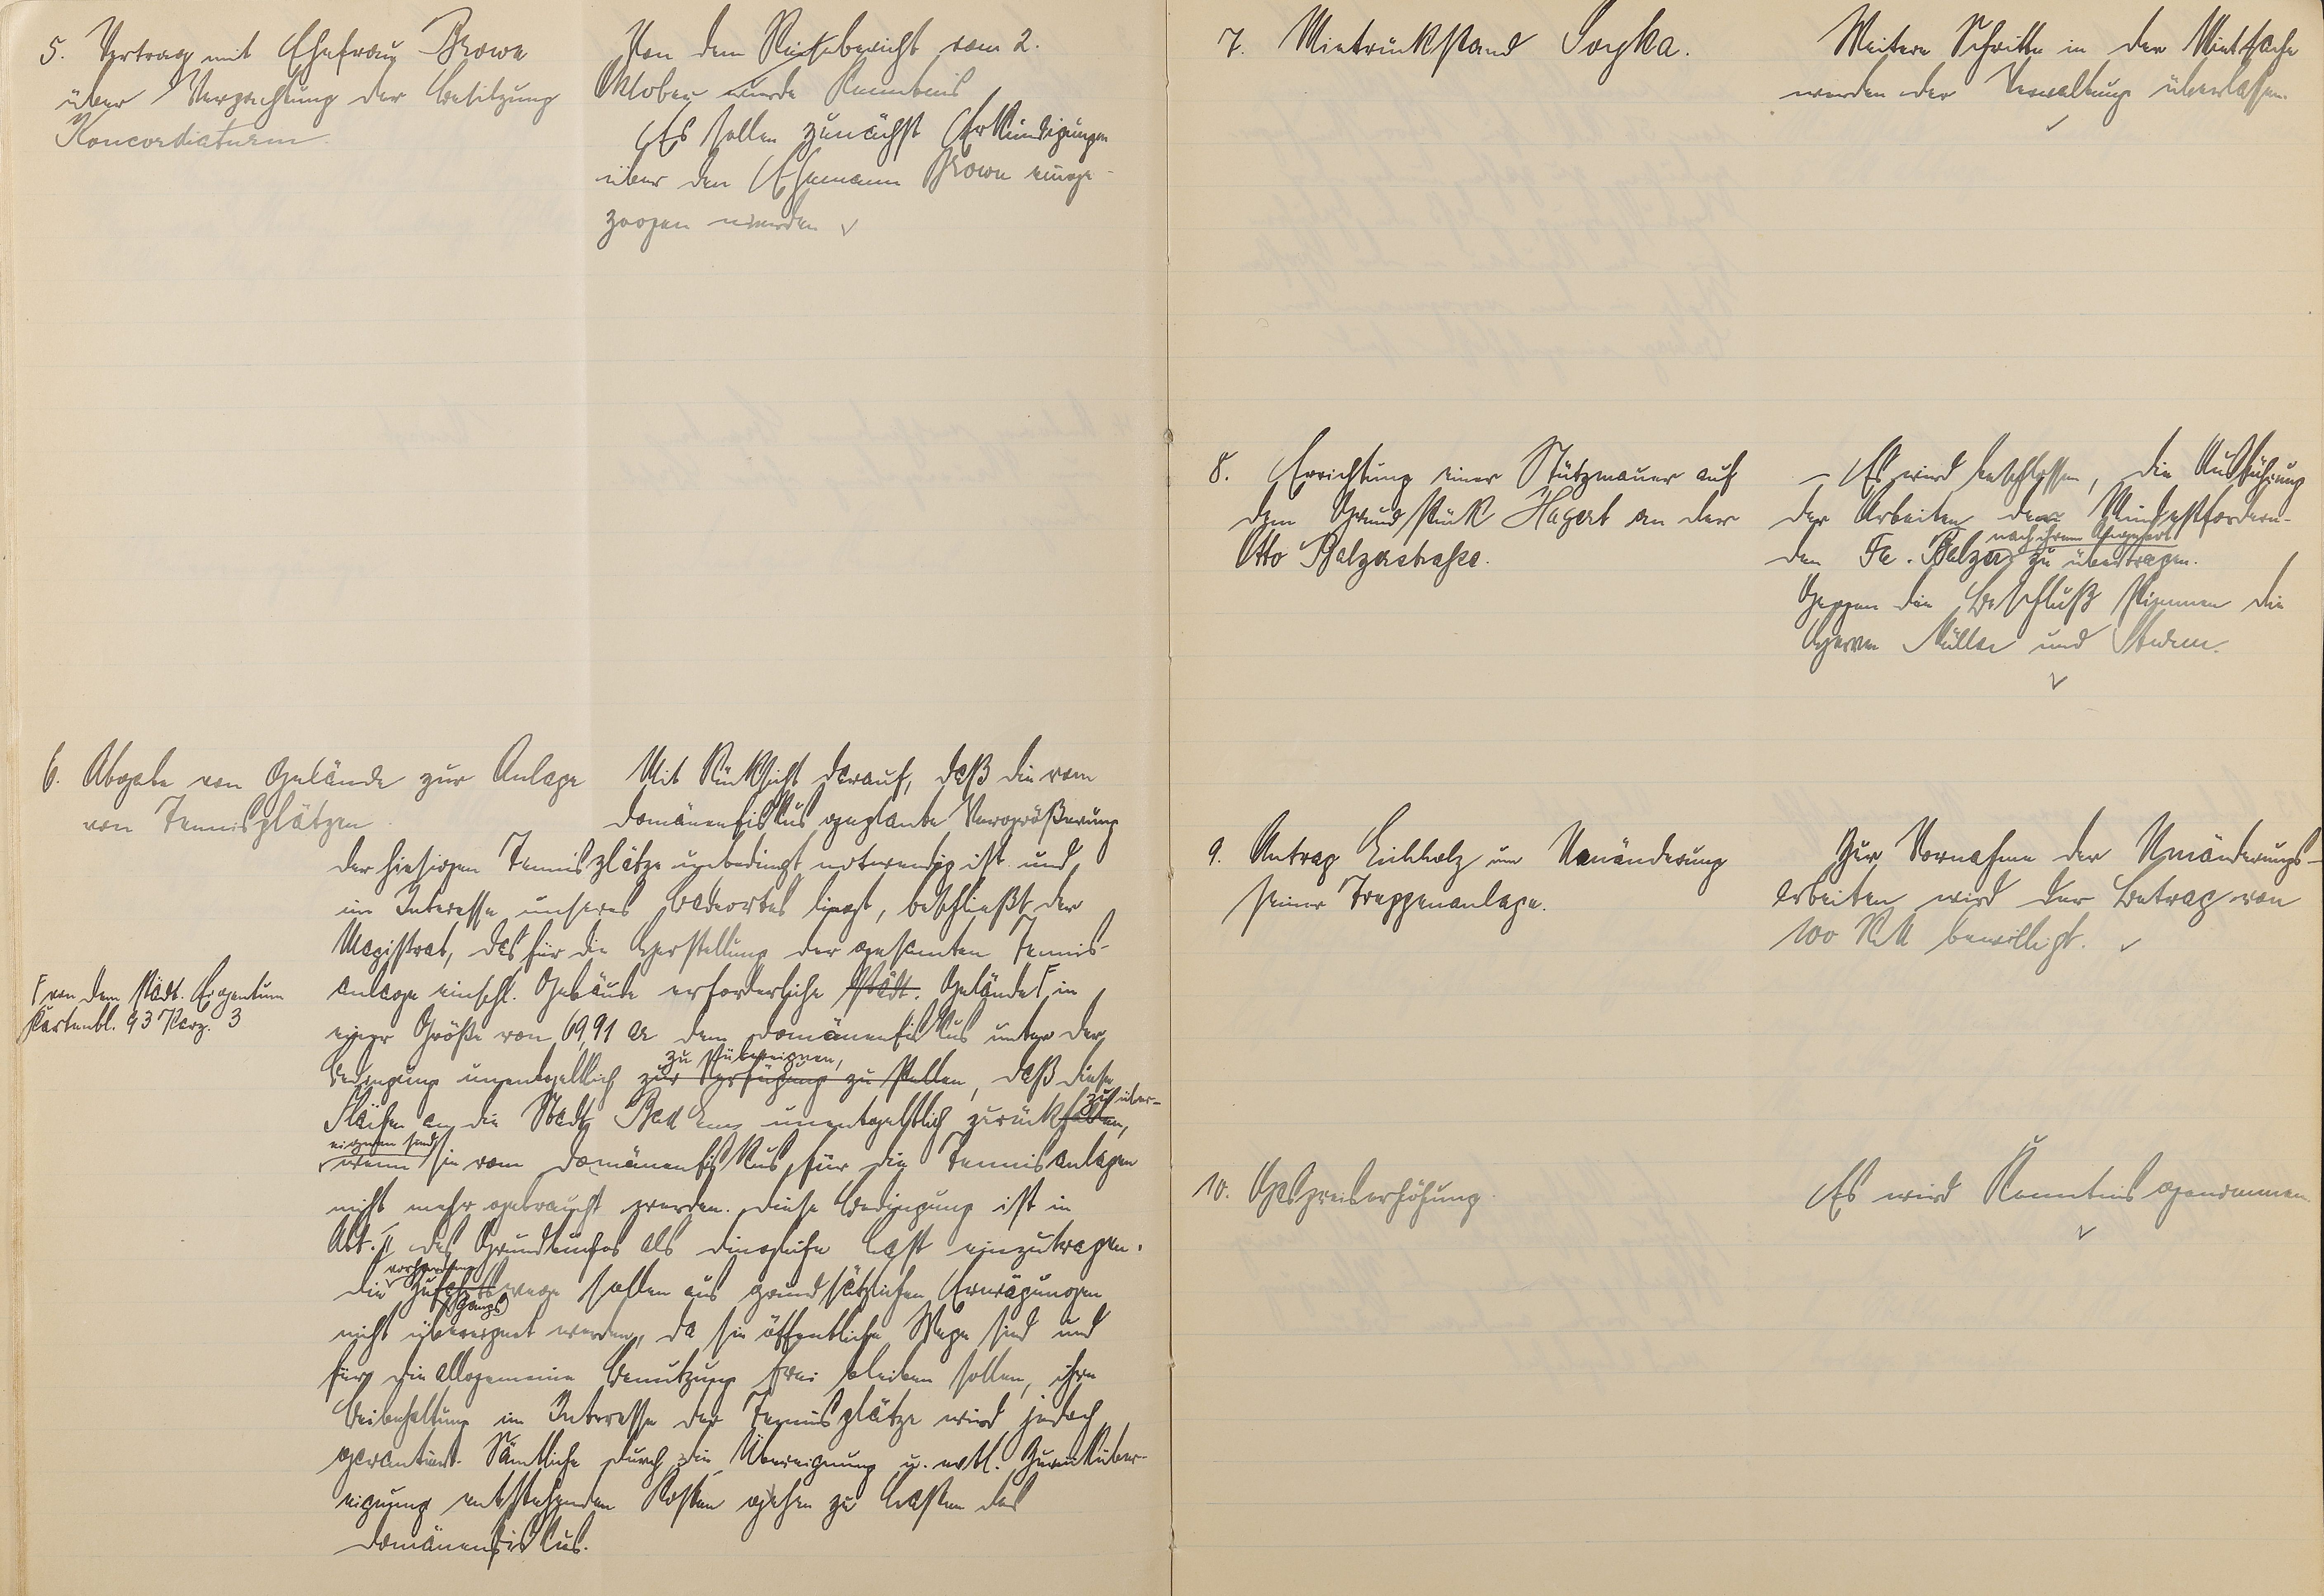 5. Vertrag mit Ehefrau Browe
über Verpachtung der Besitzung
Koncordiaturm.
Von dem Reisebericht vom 2.
Oktober wurde Kenntnis
Es sollen zunächst Erkundigungen
über den Ehemann Browe einge-
zogen werden
6. Abgabe von Gelände zur Anlage
von Tennisplätzen
Mit Rücksicht darauf, daß die vom
Domänenfiskus geplante Vergrößerung
der hiesigen Tennisplätze unbedingt notwendig ist und
im Interesse unseres Badeortes liegt, beschließt der
Magistrat, das für die Herstellung der gesamten Tennis-
anlage einschl. Gebäude erforderliche städt. Gelände F in
F von dem städt. Eigentum
Kartenbl. 93 Parz. 3
einer Größe von 69,91 ar dem Domänenfiskus unter der
zu übereignen,
Bedingung unentgeltlich zur Verfügung zu stellen, daß diese
zu über-
Flächen an die Stadt Bad Ems unentgeltlich zurückfallen,
eignen sind
wenn sie vom Domänenfiskus für die Tennisanlagen
nicht mehr gebraucht werden. Diese Bedingung ist in
Abt. II des Grundbuches als dingliche Last einzutragen.
vorhandenen
Die Zufahrtswege sollen aus grundsätzlichen Erwägungen
gangs
nicht übereignet werden, da sie öffentliche Wege sind und
für die allgemeine Benutzung frei bleiben sollen, ihre
Beibehaltung im Interesse der Tennisplätze wird jedoch
garantiert. Sämtliche durch die Übereignung u. evtl. Zurücküber-
eignung entstehenden Kosten gehen zu Lasten des
Domänenfiskus.
7. Mietrückstand Soyka.
Weitere Schritte in der Mietsache
werden der Verwaltung überlassen.
8. Errichtung einer Stützmauer auf
dem Grundstück Hagert an der
Otto Balzerstraße.
- Es wird beschlossen, die Ausführung
der Arbeiten der Mindestfordern-
nach ihrem Angebot
den Fa. Balzer zu übertragen.
Gegen den Beschluß stimmen die
Herren Müller und
9. Antrag Eichholz um Umänderung
seiner Treppenanlage.
Zur Vornahme der Umänderungs-
arbeiten wird der Betrag von
100 RM bewilligt.
10. Gaspreiserhöhung.
Es wird Kenntnis genommen